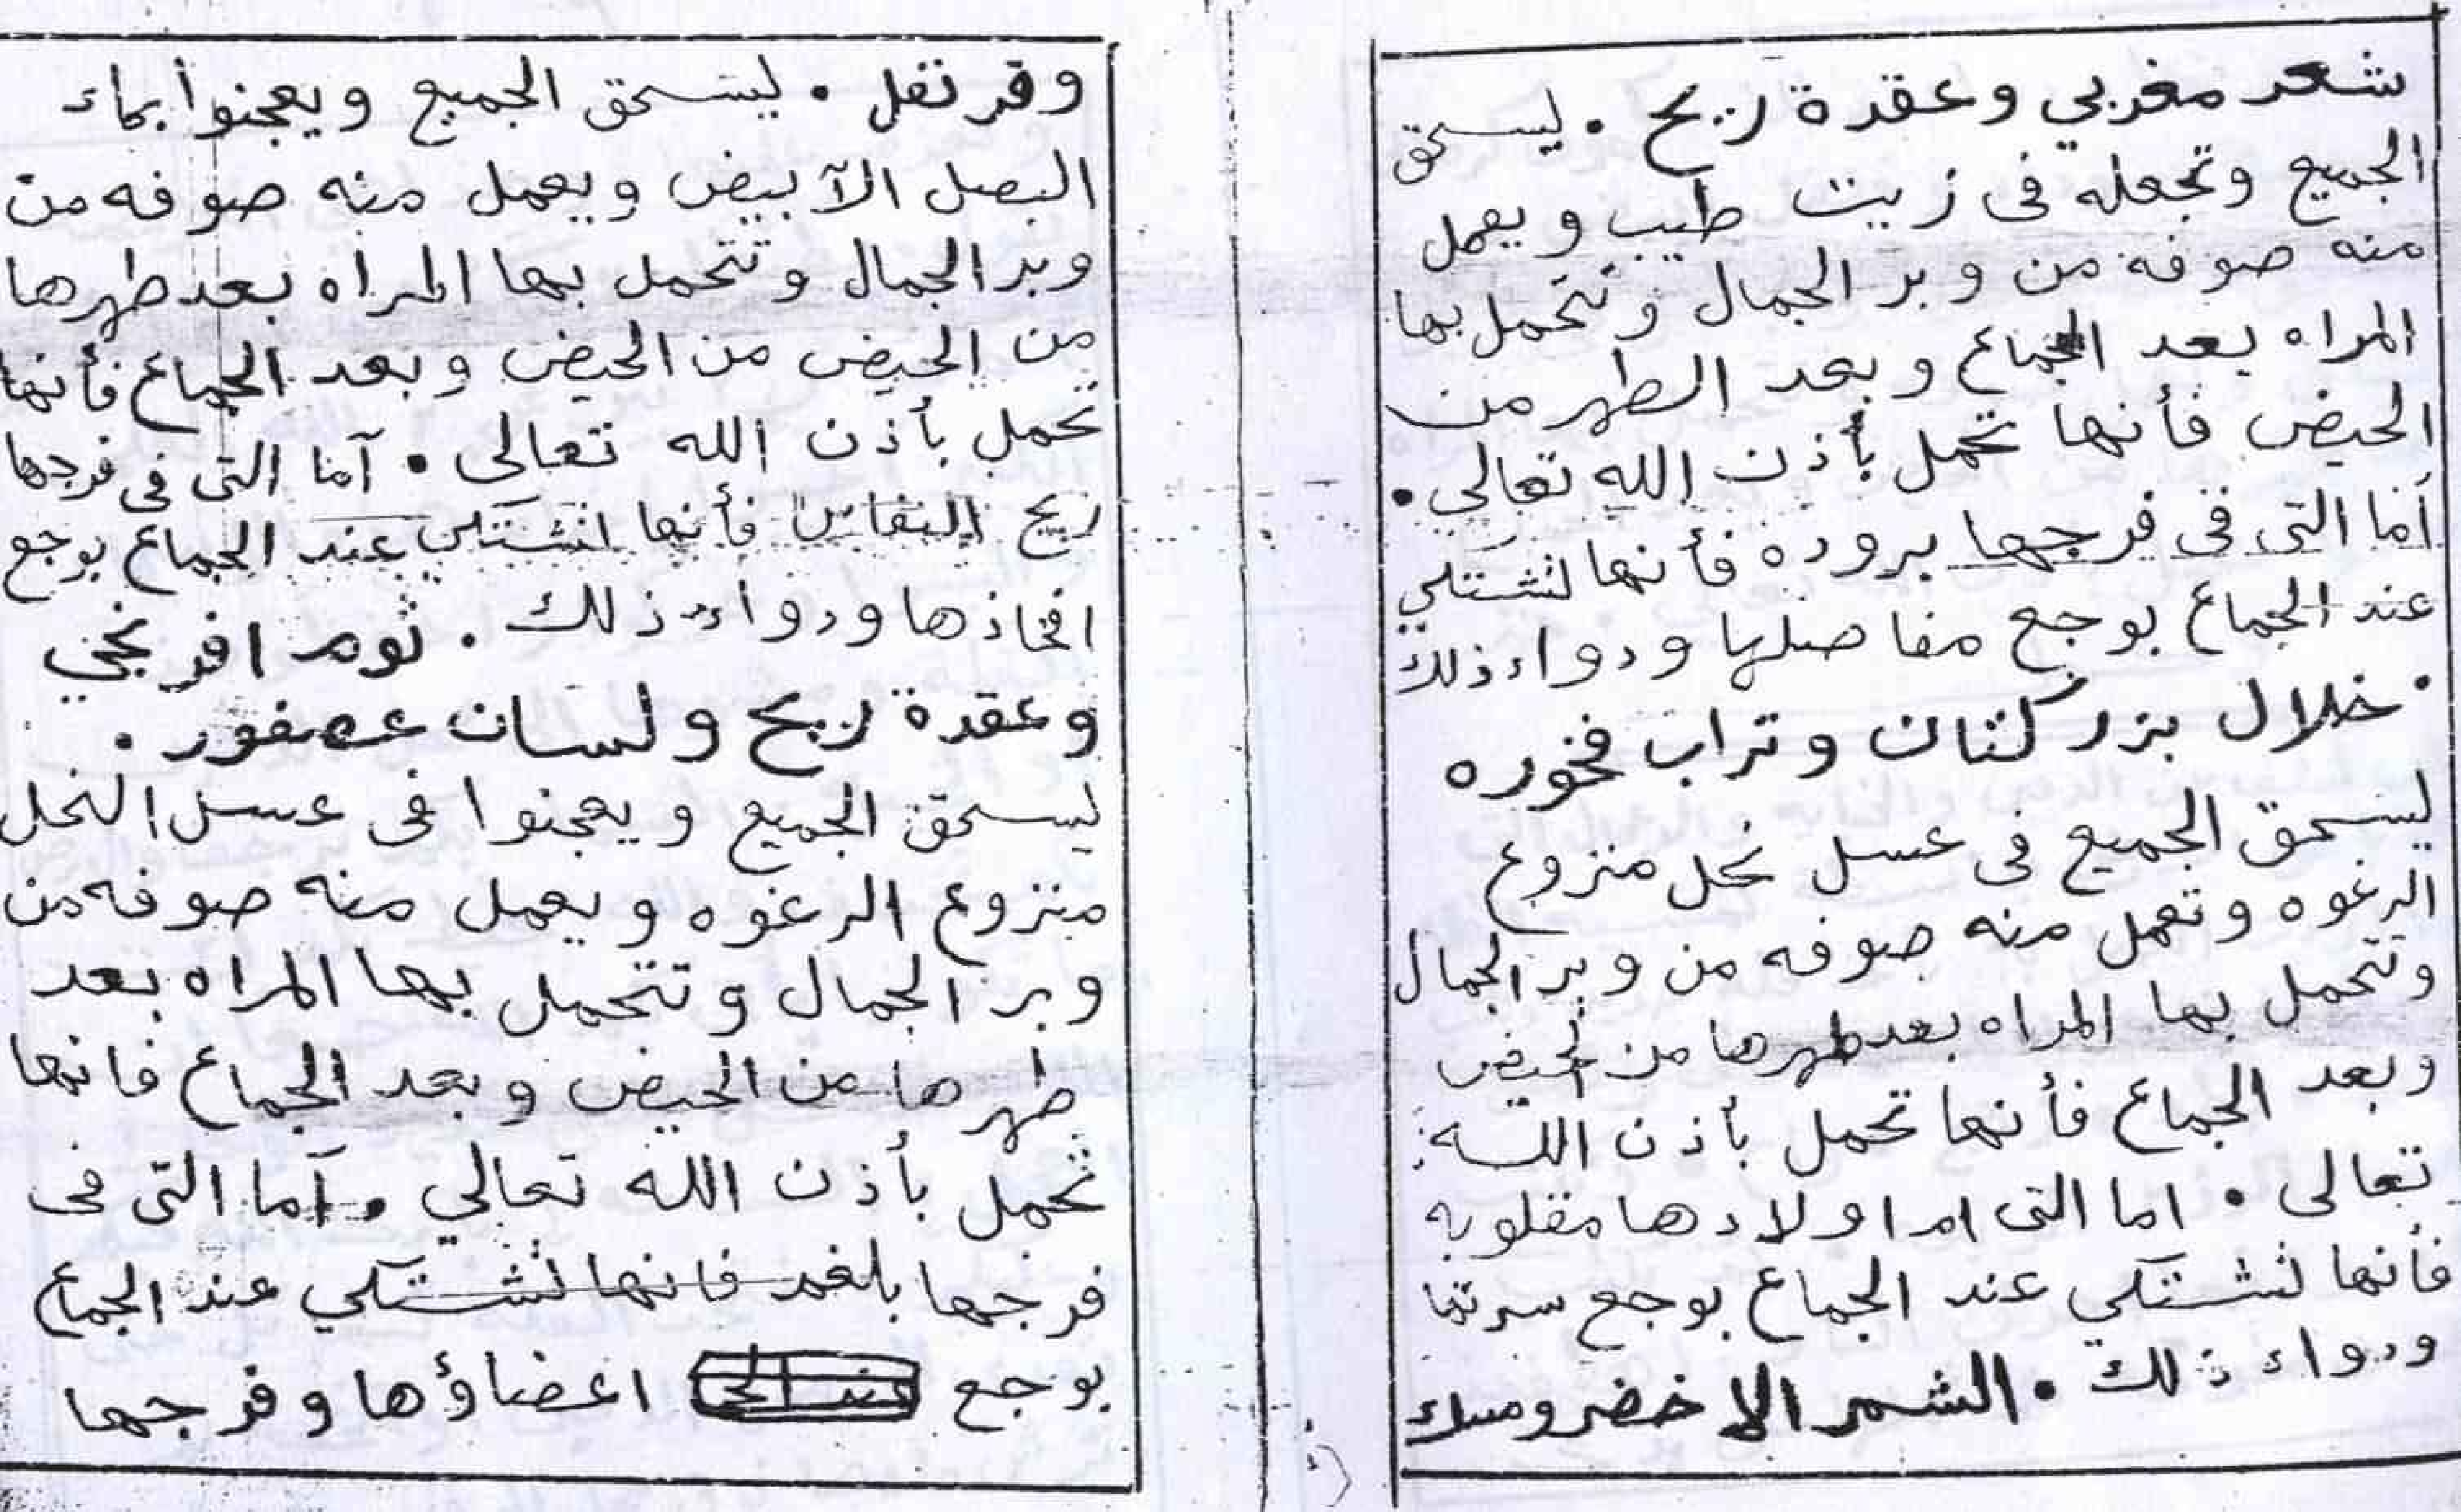 شعر مغربي وعقدة ريح . ليسحق
الجميع وتجعله فى زيت طيب ويعمل
منه صوفه من وبر الجمال وتتحمل بها
المراه بعد الجماع وبعد الطهر من
الحيض فأنها تحمل بأذن الله تعالى .
أما التى فى فرجها بروده فأنها لتشتكي
عند الجماع بوجع مفاصلها ودواء ذلك
. خلال بزر كتان وتراب فخوره
ليسحق الجميع فى عسل نحل منزوع
الرغوه وتعمل منه صوفه من وبر الجمال
وتتحمل بها المراه بعد طهرها من الحيض
وبعد الجماع فأنها تحمل بأذن الله
تعالى . اما التى ام اولادها مقلوبه
فأنها لتشتكي عند الجماع بوجع سرتها
ودواء ذلك . الشمر الاخضر ومسك
وقرنفل . ليسحق الجميع ويعجنوا بماء
البصل الآبيض ويعمل منه صوفه من
وبر الجمال وتتحمل بها المراه بعد طهرها
من الحيض من الحيض وبعد الجماع فأنها
تحمل بأذن الله تعالى . آما التى فى فرجها
ريح النفاس فأنها لتشتكي عند الجماع بوجع
افخاذها ودواء ذلك . ثوم افرنجي
وعقدة ريح ولسان عصفور .
ليسحق الجميع ويعجنوا فى عسل النحل
منزوع الرغوه ويعمل منه صوفه من
وبر الجمال وتتحمل بها المراه بعد
طهرها من الحيض وبعد الجماع فانها
تحمل بأذن الله تعالي . آما التى فى
فرجها بلغم فانها لتشتكي عند الجماع
بوجع اعضاؤها وفرجها